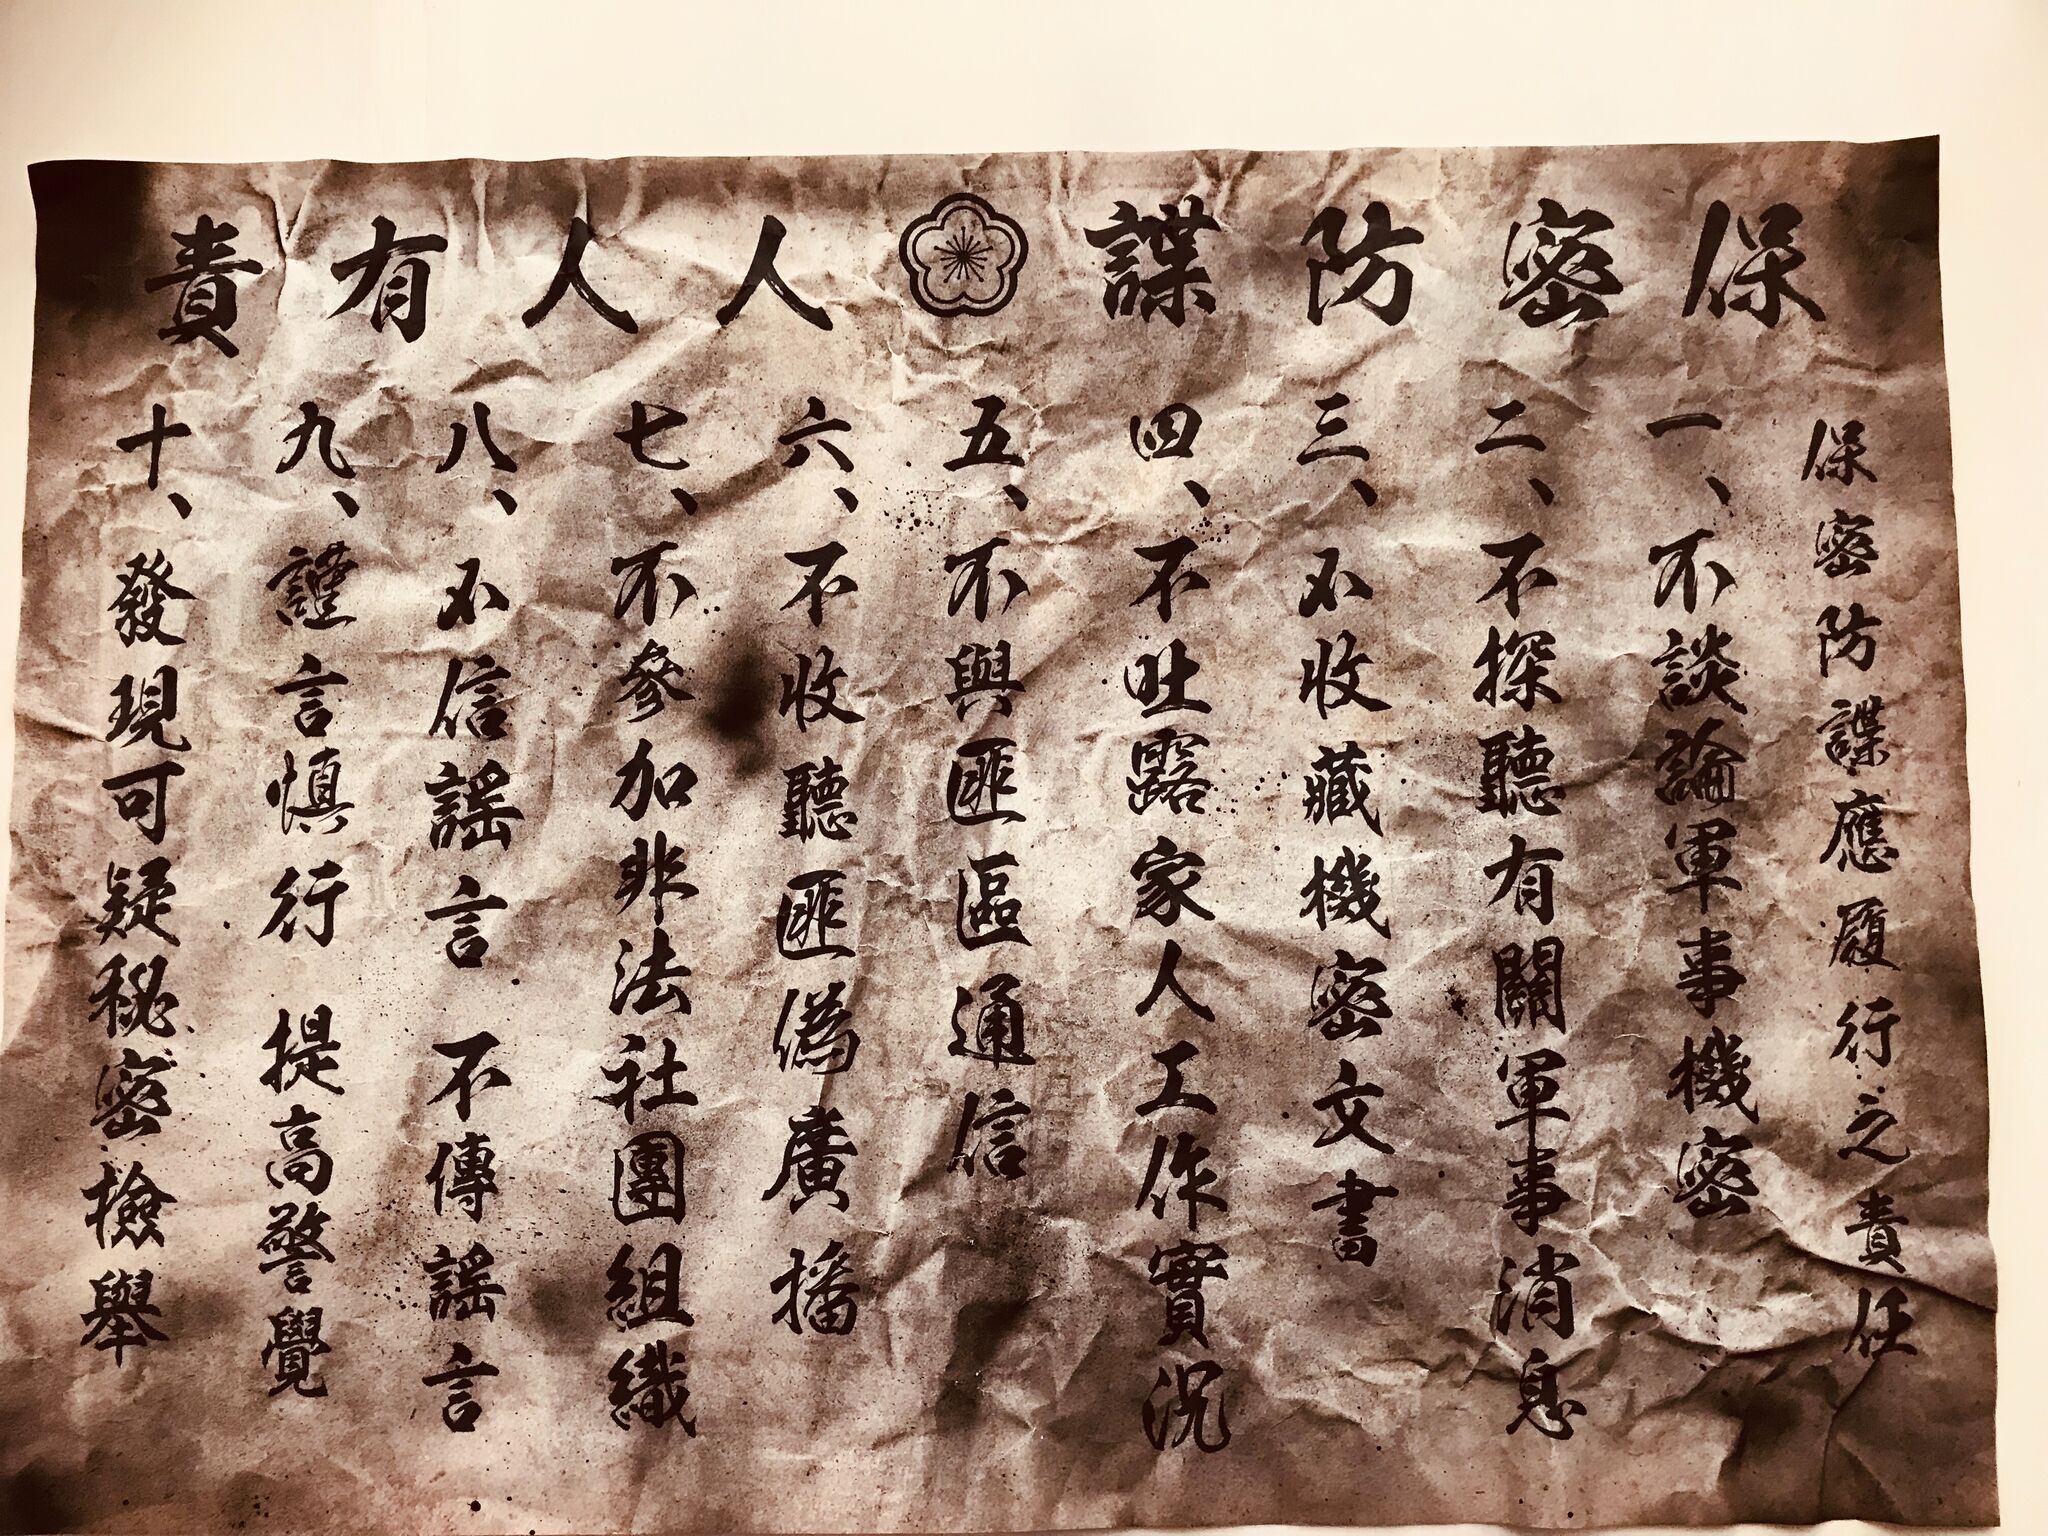 保密防諜人人有責
保密防諜應履行之責任
一、不談論軍事機密
二、不探聽有關軍事消息
三、不收藏機密文書
四、不吐露家人工作實況
五、不與匪區通信
六、不收聽匪偽廣播
七、不參加非法社團組織
八、不信謠言 不傳謠言
九、謹言慎行 提高警覺
十、發現可疑秘密撿舉